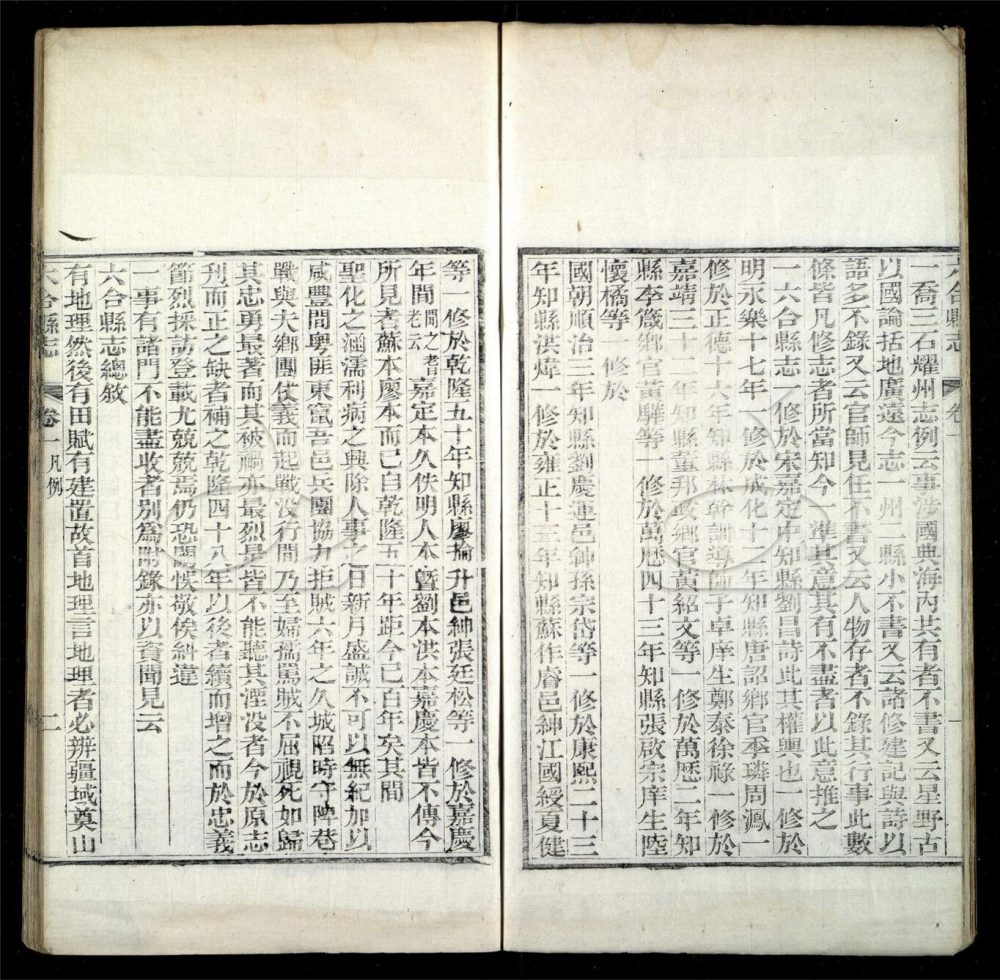 六合縣志 卷一
一喬三石耀州志例云事涉國典海內共有者不書又云星野古
以國論括地廣遠今志一州一縣小不書又云諸修建記與詩以
語多不錄又云官師見任不書又云人物存者不錄其行事此數
條皆凡修志者所當知今一準其意其有不盡者以此意推之
一六合縣志一修於宋嘉定中知縣劉昌詩此其權輿也一修於
明永樂十七年一修於成化十二年知縣唐詔鄉官季璘周渢一
修於正德十六年知縣林幹訓導師子卓庠生鄭泰徐祿一修於
嘉靖三十二年知縣董邦政鄉官黃紹文等一修於萬歷二年知
縣李箴鄉官黃驊等一修於萬歷四十三年知縣張啟宗庠生陸
懷橘等一修於
國朝順治三年知縣劉慶運邑紳孫宗岱等一修於康熙二十三
年知縣洪煒一修於雍正十三年知縣蘇作睿邑紳江國綬夏健
等一修於乾隆五十年知縣廖掄升邑紳張廷松等一修於嘉慶
年間聞之耆老云嘉定本久佚明人本曁劉本洪本嘉慶本皆不傳今
所見者蘇本廖本而已自乾隆五十年距今已百年矣其間
聖化之涵濡利病之興除人事之日新月盛誠不可以無紀加以
咸豐間粵匪東竄吾邑兵團協力拒賊六年之久城陷時守陴巷
戰與大鄉團仗義而起戰没行間乃至婦孺罵賊不屈視死如歸
其忠勇最著而其被禍亦最烈是皆不能聽其湮没者今於原志
刊而正之缺者補之乾隆四十八年以後者續而增之而於忠義
節烈採訪登載尤兢兢焉仍恐闕悞敬俟糾違
一事有諸門不能盡收者別爲附錄亦以資聞見云
六合縣志總敘
有地理然後有田賦有建置故首地理言地理者必辨疆域奠山
六合縣志 卷一凡例 二